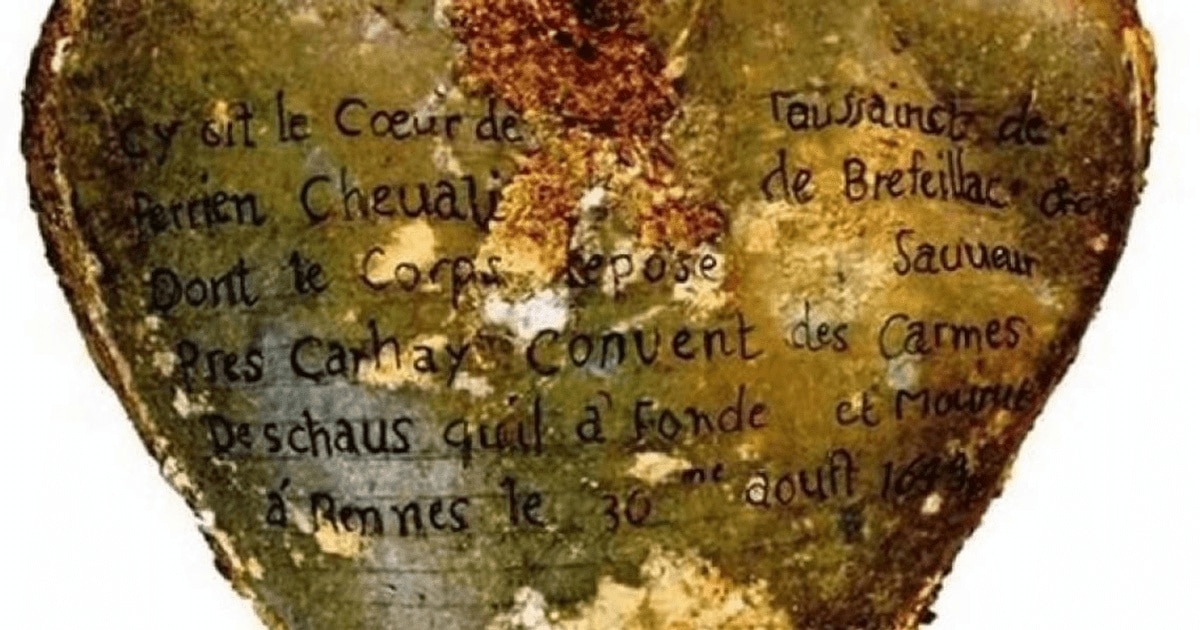 Cy Git le Cœur de Toussainct de
Perrien Cheuali de Brefeillac &c
Dont le Corps Repose Sauueur
Pres Carhay Conuent des Carmes
Deschaus quil à Fonde et Mourut
à Rennes le 30me aoust